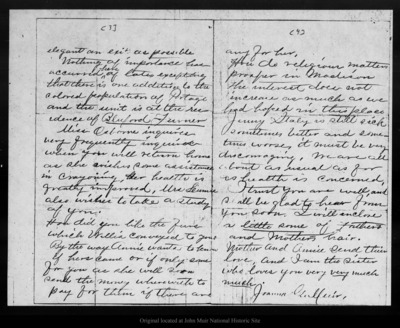 (3)
elegant an exit as possible
Nothing of importance has
occurred here of late excepting
that there is one addition to the
colored population of Portage
and the unit is at the resi-
dence of Bluford Turner
Miss Osborne inquires
very frequently
when you will return home
as she wishes some assistance
in crayoning. Her health is
greatly improved, Mrs
also wishes to take a study
of you.
How did you like the
which Willie conveyed to you
By the way Annie wants to know
if hers came or if only some
for you as she will soon
send the money wherewith to
pay for them if there are
(4)
any for her.
How do religious matters
prosper in Madison
The interest does not
increase as much as we
had hoped in this place
is still sick
sometimes better and some-
times worse, it must be very
discouraging. We are all
about as usual as far
as health is concerned,
I trust you are well, and
shall be glad to hear from
you soon. I will enclose
a little some of Father's
and Mother's hair.
Mother and Annie send their
love, and I am the sister
who loves you very very much
much
Joanna Muir.
Original located at John Muir National Historic Site